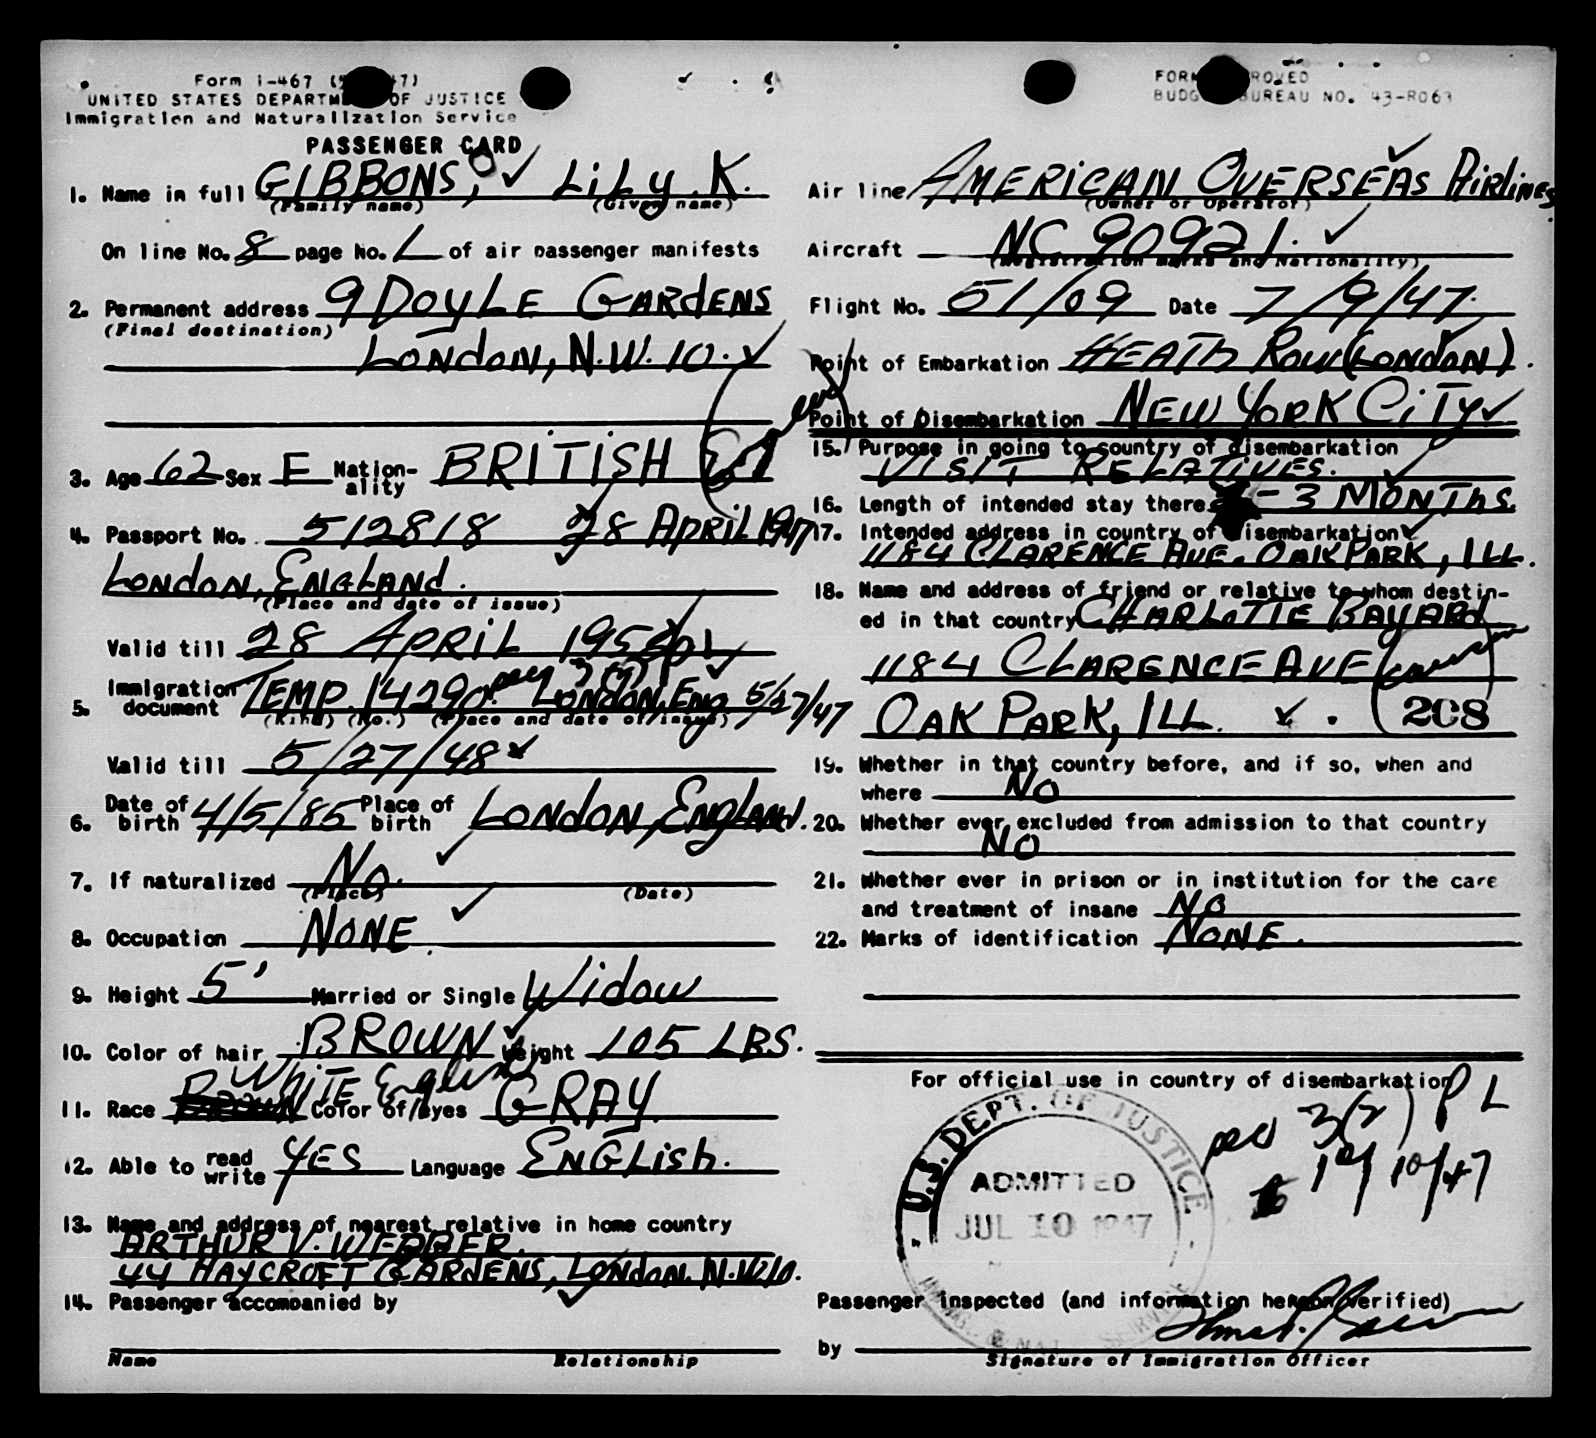 Form I-467
UNITED STATES DEPARTMENT OF JUSTICE
Immigration and Naturalization Service
PASSENGER CARD
1. Name in full GIBBONS, LiLy. K.
(Family name) (Given name)
On line No. 8 page No. 1 of air passenger manifests
2. Permanent address 9 DOYLE GARDENS
(Final destination)
LONDON, N.W. 10.
3. Age 62 Sex F Nation-ality BRITISH
4. Passport No. 512818 28 APRIL 1947
LONDON, ENGLAND.
(Place and date of issue)
Valid till 28 APRIL 1952
5. Immigration document TEMP. 14290 LONDON, ENG 5/27/47
(Kind) (No.) (Place and date of issue)
Valid till 5/27/48
6. Date of birth 4/5/85 Place of birth LONDON, ENGLAND.
7. If naturalized No.
(Place) (Date)
8. Occupation NONE.
9. Height 5' Married or Single Widow
10. Color of hair BROWN Weight 105 LBS.
11. Race BROWN WHITE English Color of eyes GRAY
12. Able to read write YES Language ENGLISH.
13. Name and address of nearest relative in home country
ARTHUR V. WEBBER.
44 HAYCROFT GARDENS, LONDON. N.W10.
14. Passenger accompanied by
Name Relationship
FORM APPROVED
BUDGET BUREAU NO. 43-R063
Air line AMERICAN OVERSEAS AIRLINES
(Owner or operator)
Aircraft NC 90921.
(Registration marks and Nationality)
Flight No. 51/09 Date 7/9/47.
Point of Embarkation HEATH ROW (LONDON).
Point of Disembarkation NEW YORK CITY
15. Purpose in going to country of disembarkation
VISIT RELATIVES.
16. Length of intended stay there - 3 MONTHS.
17. Intended address in country of disembarkation
1184 CLARENCE AVE. OAK PARK, ILL.
18. Name and address of friend or relative to whom destin-
ed in that country CHARLOTTE BAYARD
1184 CLARENCE AVE
OAK PARK, ILL. 208
19. Whether in that country before, and if so, when and
where NO
20. Whether ever excluded from admission to that country
NO
21. Whether ever in prison or in institution for the care
and treatment of insane NO
22. Marks of identification NONE.
For official use in country of disembarkation
3(2) P L
10/47
U.S. DEPT. OF JUSTICE
ADMITTED
JUL 10 1947
Passenger inspected (and information hereon verified)
by
Signature of Immigration Officer